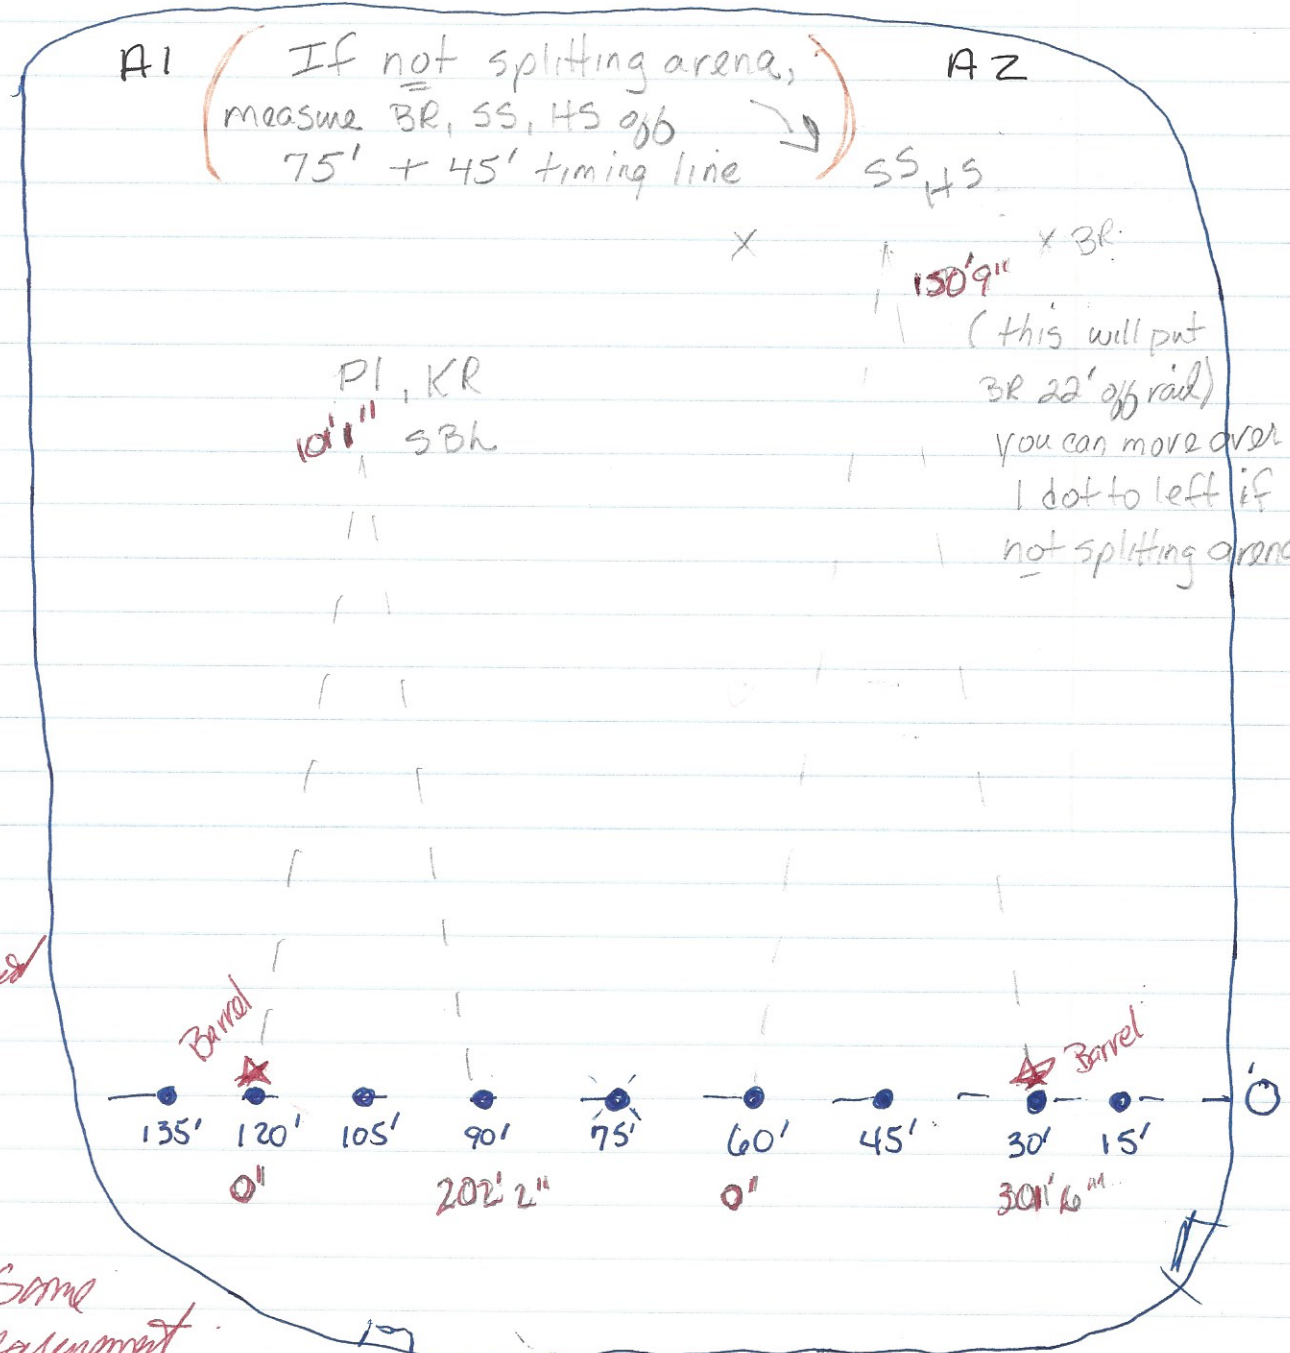 A1
A2
( If not splitting arena,
measure BR, SS, HS off
75' + 45' timing line )
SS, HS
X
x BR
150'9"
( this will put
BR 22' off rail)
you can move over
1 dot to left if
not splitting arena
P1, KR
101'1"
SBL
Barrel
Barrel
135' 120' 105' 90' 75' 60' 45' 30' 15' 0
0" 202' 2" 0" 301'6"
Same